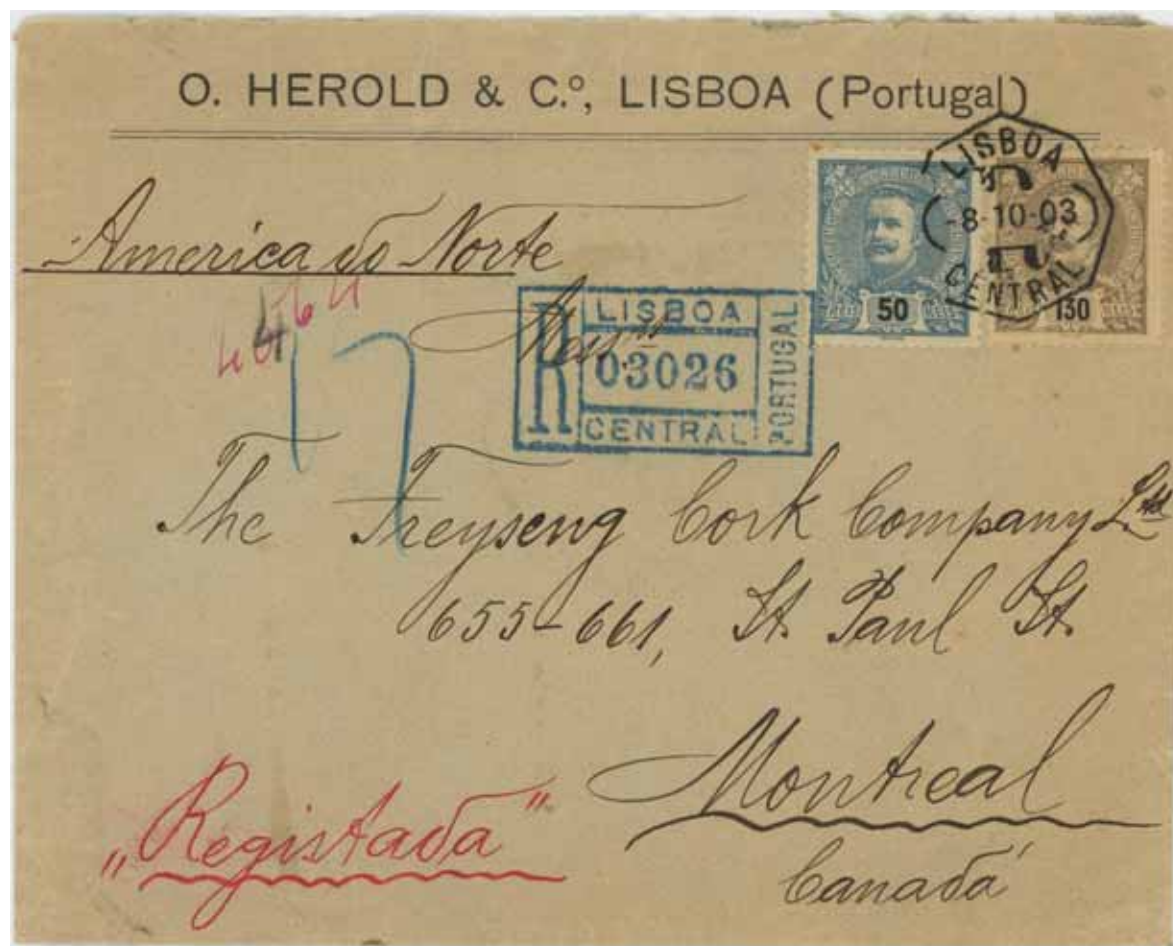 O. HEROLD & C.º, LISBOA (Portugal)
LISBOA
-8-10-03
CENTRAL
50
130
America do Norte
Mess.rs
R LISBOA
03026
CENTRAL
PORTUGAL
17
The Freyseng Cork Company Ltd
655-661, St. Paul St.
Montreal
Canadá
„Registada"